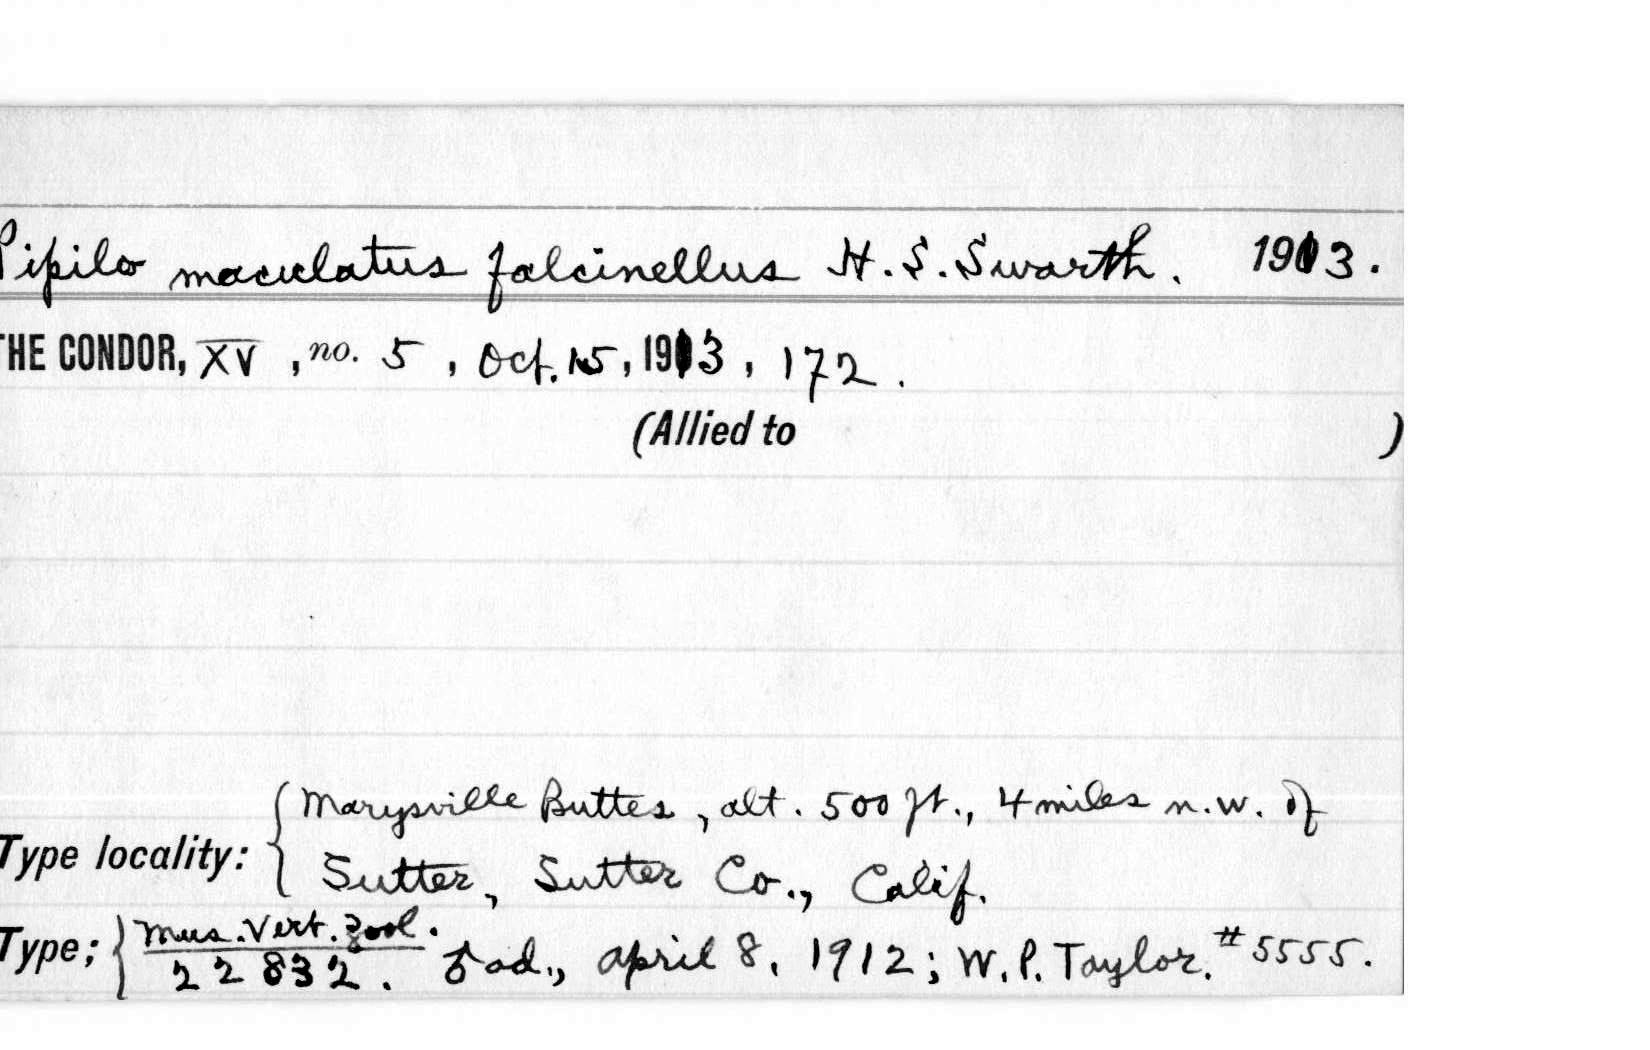 Pipilo maculatus falcinellus H.S. Swarth. 1913.
THE CONDOR, XV, no. 5, Oct. 15, 1913, 172.
(Allied to )
Marysville Buttes, alt. 500 ft., 4 miles n.w. of
Type locality: Sutter, Sutter Co., Calif.
Type; Mus. Vert. Zool.
22832. ♂ ad., April 8, 1912; W.P. Taylor. #5555.